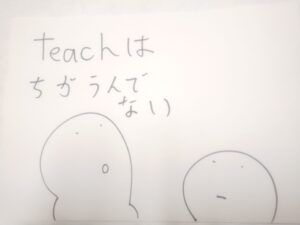 teachは
ちがうんで
ない